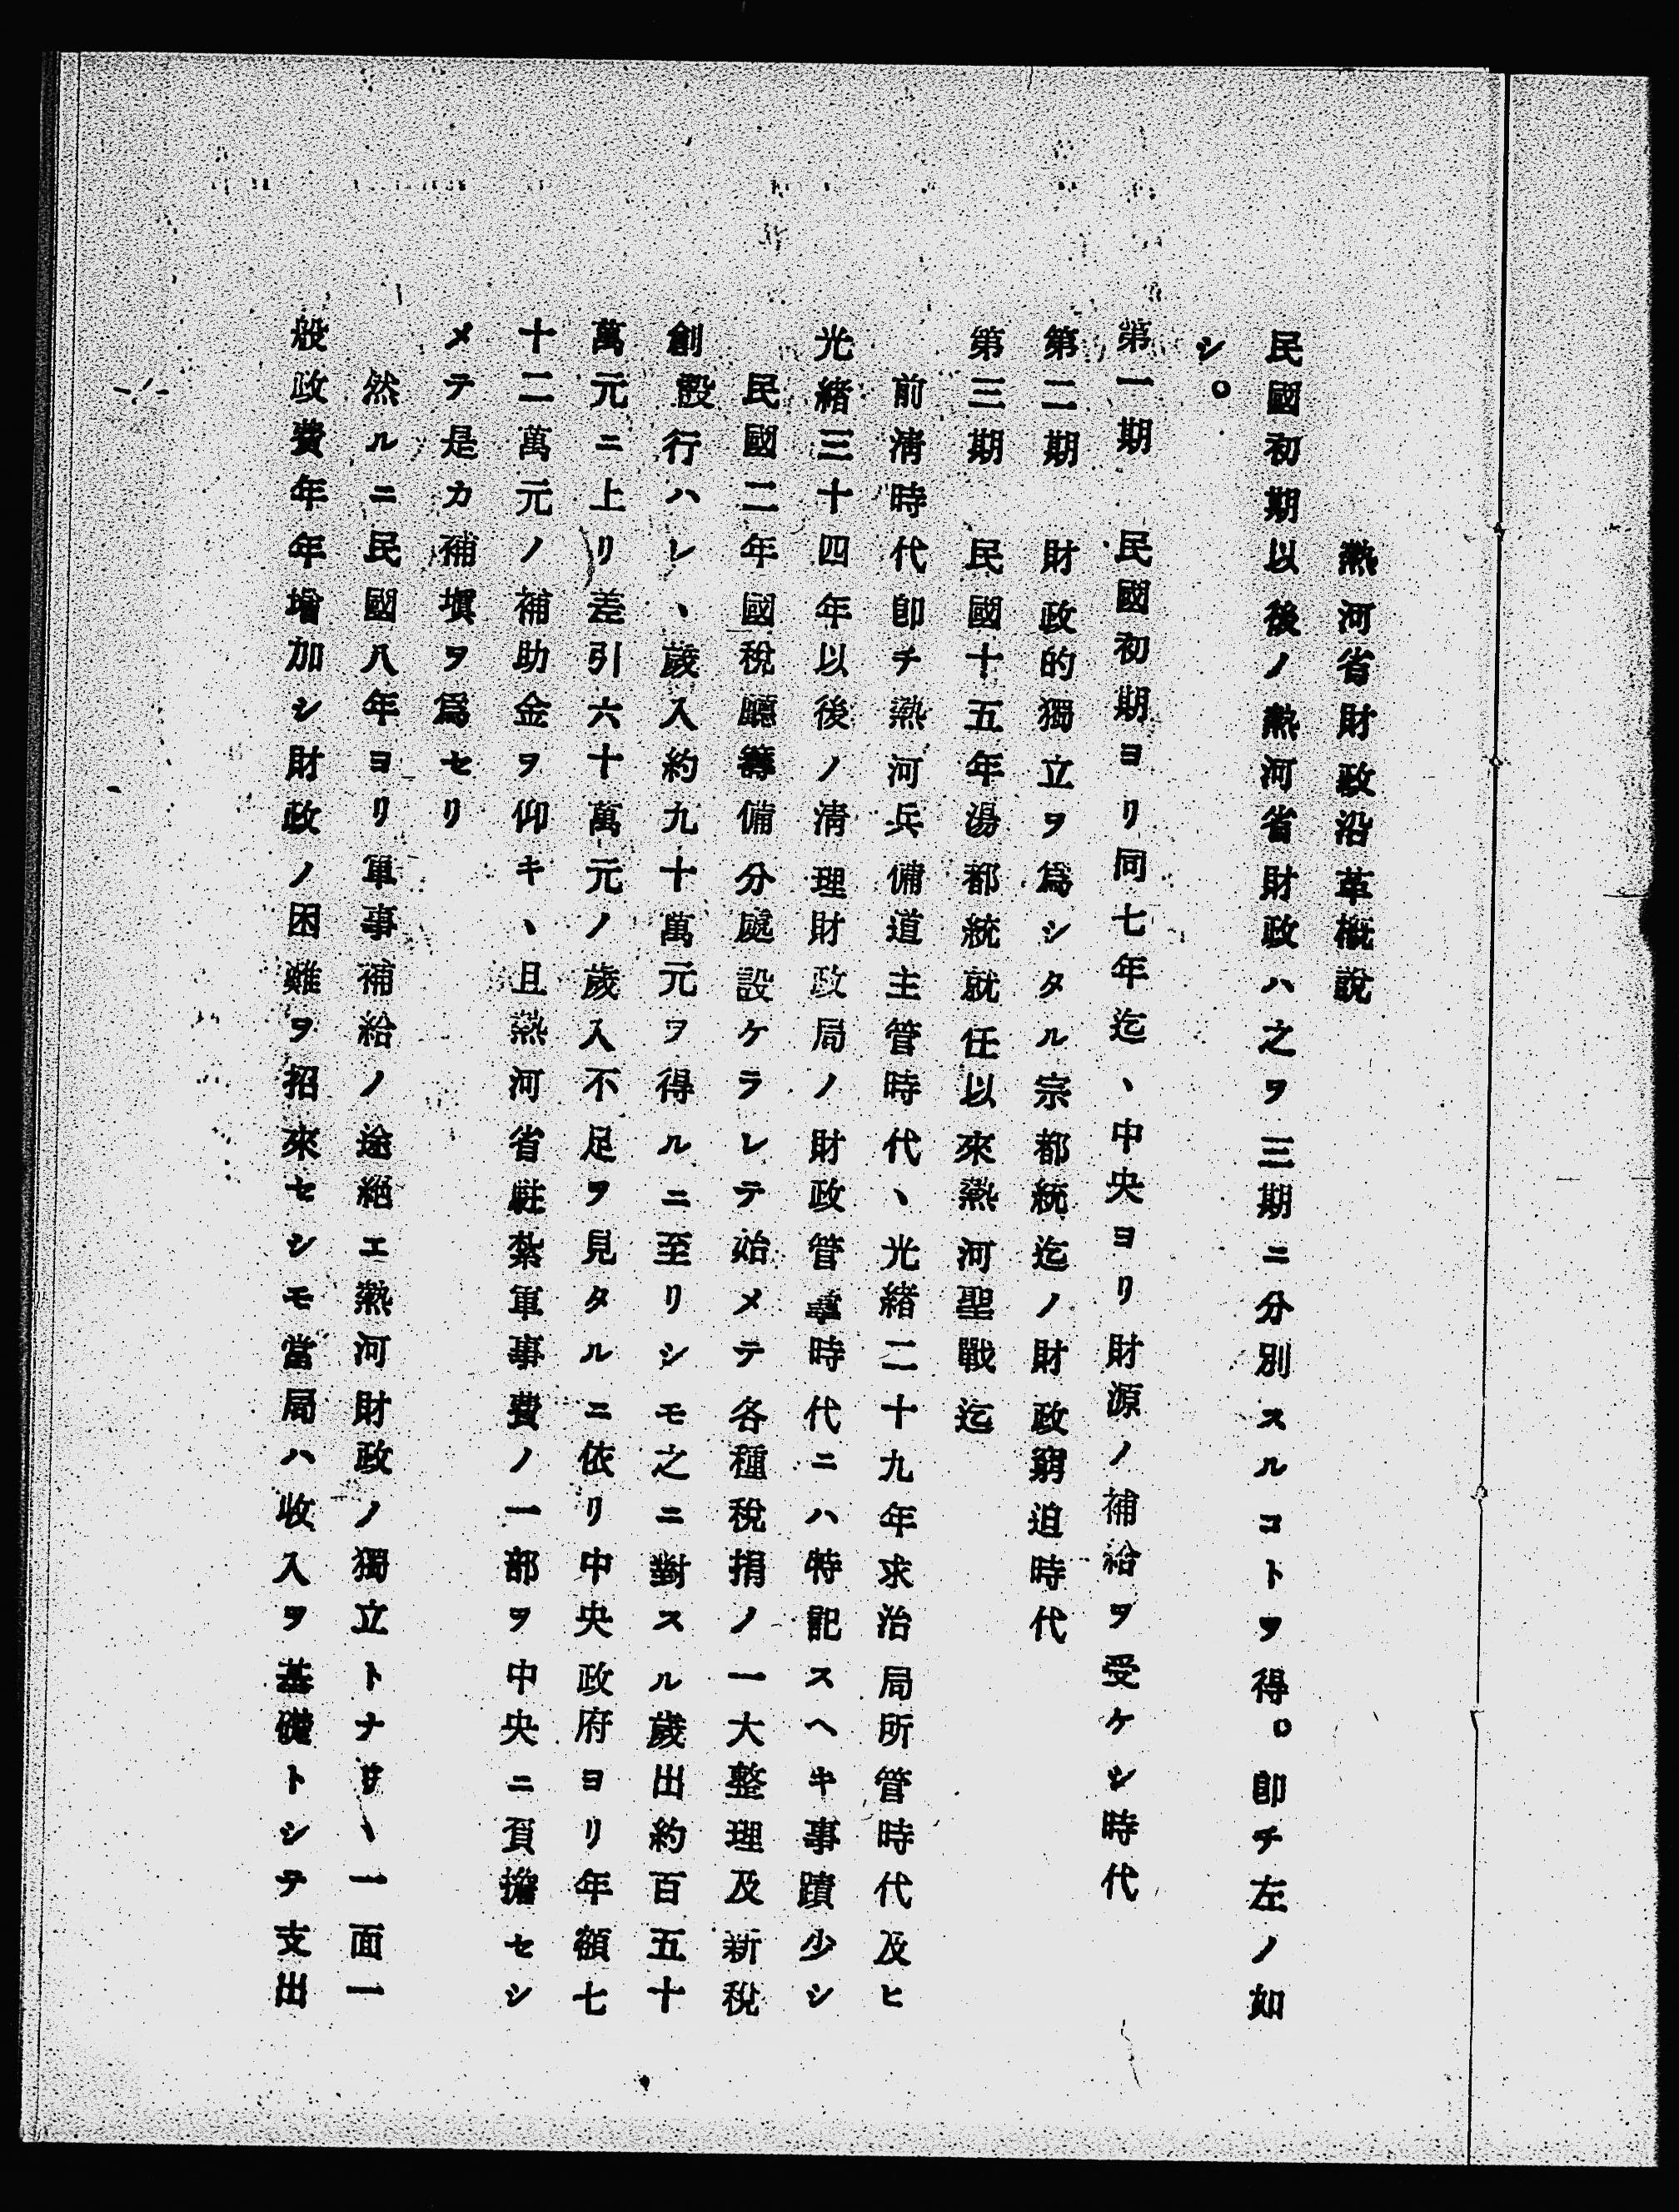 熱河省財政沿革概說
民國初期以後ノ熱河省財政ハ之ヲ三期ニ分別スルコトヲ得。卽チ左ノ如
シ。
第一期　民國初期ヨリ同七年迄、中央ヨリ財源ノ補給ヲ受ケシ時代
第二期　財政的獨立ヲ爲シタル宗都統迄ノ財政窮迫時代
第三期　民國十五年湯都統就任以來熱河聖戰迄
前淸時代卽チ熱河兵備道主管時代、光緖二十九年求治局所管時代及ヒ
光緖三十四年以後ノ淸理財政局ノ財政管掌時代ニハ特記スヘキ事蹟少シ
民國二年國稅廳籌備分處設ケラレテ始メテ各種稅捐ノ一大整理及新稅
創設行ハレ、歲入約九十萬元ヲ得ルニ至リシモ之ニ對スル歲出約百五十
萬元ニ上リ差引六十萬元ノ歲入不足ヲ見タルニ依リ中央政府ヨリ年額七
十二萬元ノ補助金ヲ仰キ、且熱河省駐紮軍事費ノ一部ヲ中央ニ負擔セシ
メテ是カ補塡ヲ爲セリ
然ルニ民國八年ヨリ軍事補給ノ途絕エ熱河財政ノ獨立トナリ、一面一
般政費年年增加シ財政ノ困難ヲ招來セシモ當局ハ收入ヲ基礎トシテ支出